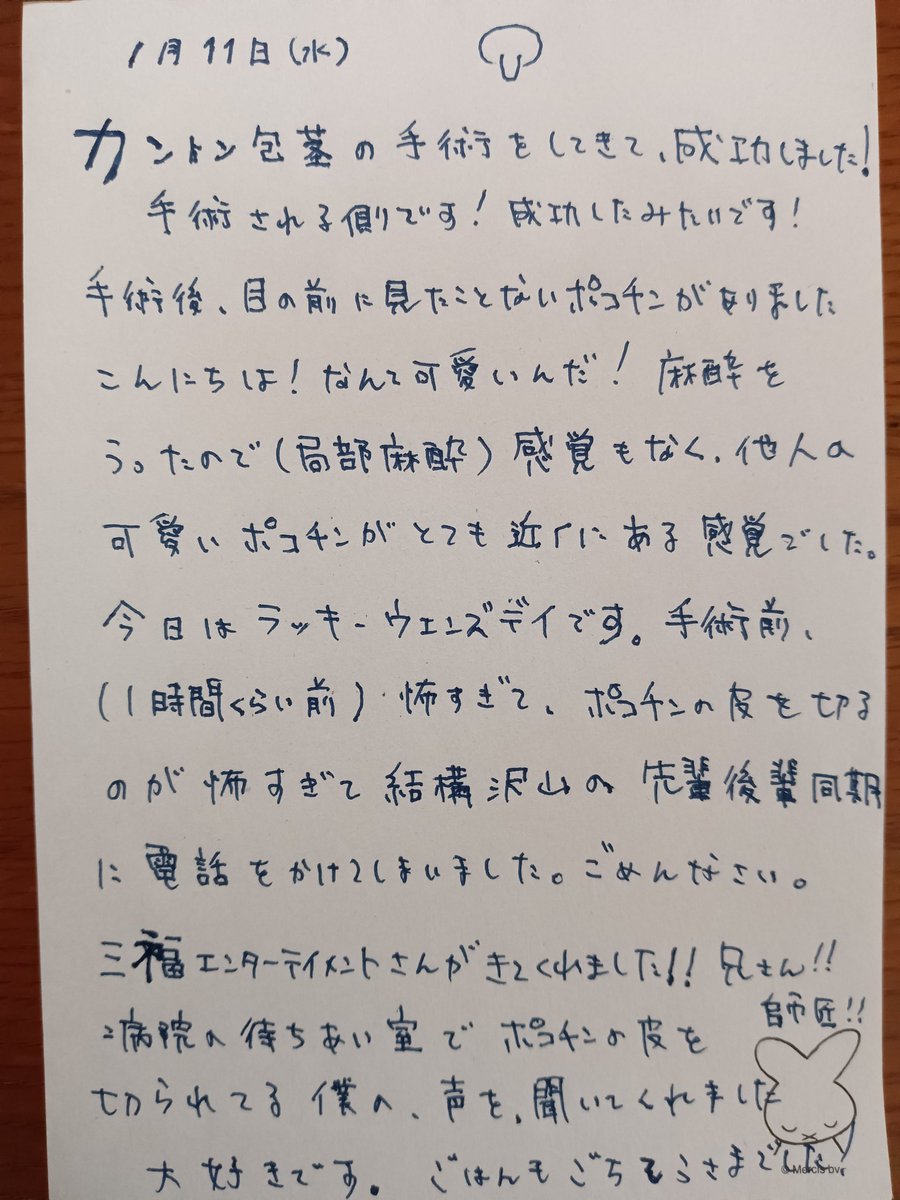 1月11日(水)
カントン包茎の手術をしてきて、成功しました!
手術される側です!成功したみたいです!
手術後、目の前に見たことないポコチンがありました
こんにちは!なんて可愛いんだ!麻酔を
うったので(局部麻酔)感覚もなく、他人の
可愛いポコチンがとても近くにある感覚でした。
今日はラッキーウェンズデイです。手術前、
(1時間くらい前)怖すぎて、ポコチンの皮を切る
のが怖すぎて結構沢山の先輩後輩同期
に電話をかけてしまいました。ごめんなさい。
三福エンターテイメントさんがきてくれました!!兄さん!!
師匠!!
病院の待ちあい室でポコチンの皮を
切られてる僕の、声を、聞いてくれました
大好きです。ごはんもごちそうさまでした。
© Mercis bv